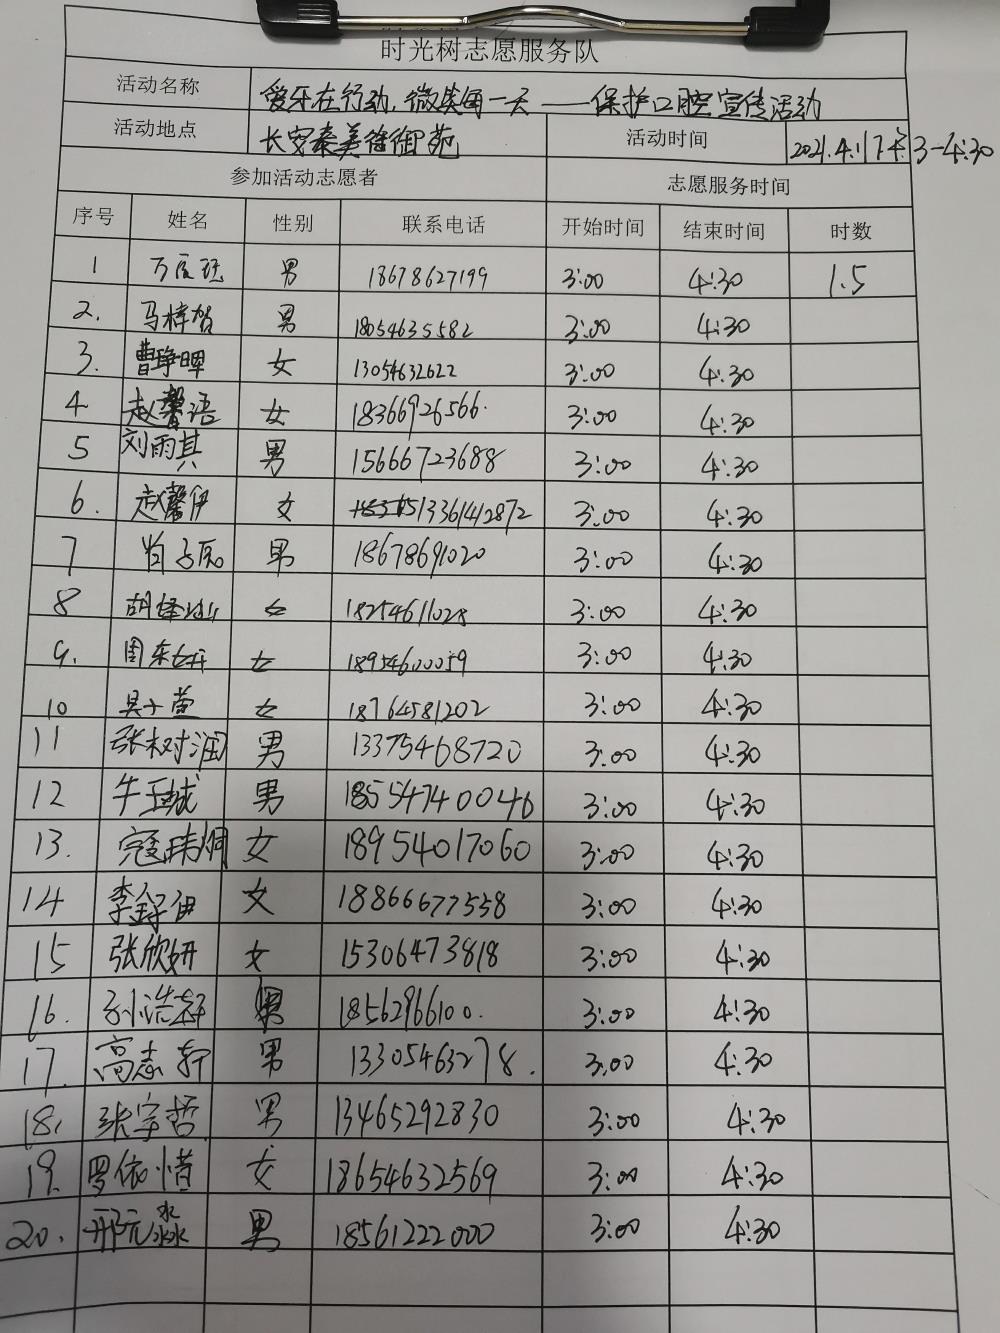 时光树志愿服务队
活动名称 爱牙在行动,微笑每一天——保护口腔宣传活动
活动地点 长安秦美徐御苑 活动时间 2021.4.17下午3-4:30
参加活动志愿者 志愿服务时间
序号 姓名 性别 联系电话 开始时间 结束时间 时数
1 男 18678627199 3:00 4:30 1.5
2. 马梓贺 男 18054635582 3:00 4:30
3. 曹琤暤 女 13054632622 3:00 4:30
4 赵馨语 女 18366926566. 3:00 4:30
5 刘雨其 男 15666723688 3:00 4:30
6. 赵馨伊 女 13361412872 3:00 4:30
7 男 18678691020 3:00 4:30
8 胡 女 18254611028 3:00 4:30
9. 周东妍 女 18954600059 3:00 4:30
10 吴子萱 女 18764581202 3:00 4:30
11 张树润 男 13375468720 3:00 4:30
12 牛玉城 男 18554740046 3:00 4:30
13. 寇玮炯 女 18954017060 3:00 4:30
14 李伊 女 18866677558 3:00 4:30
15 张欣妍 女 15306473818 3:00 4:30
16. 孙浩轩 男 18562966100. 3:00 4:30
17. 高志轩 男 13305463278. 3:00 4:30
18. 张宇哲 男 13465292830 3:00 4:30
19. 罗依惜 女 18654632569 3:00 4:30
20. 邢元淼 男 18561222000 3:00 4:30